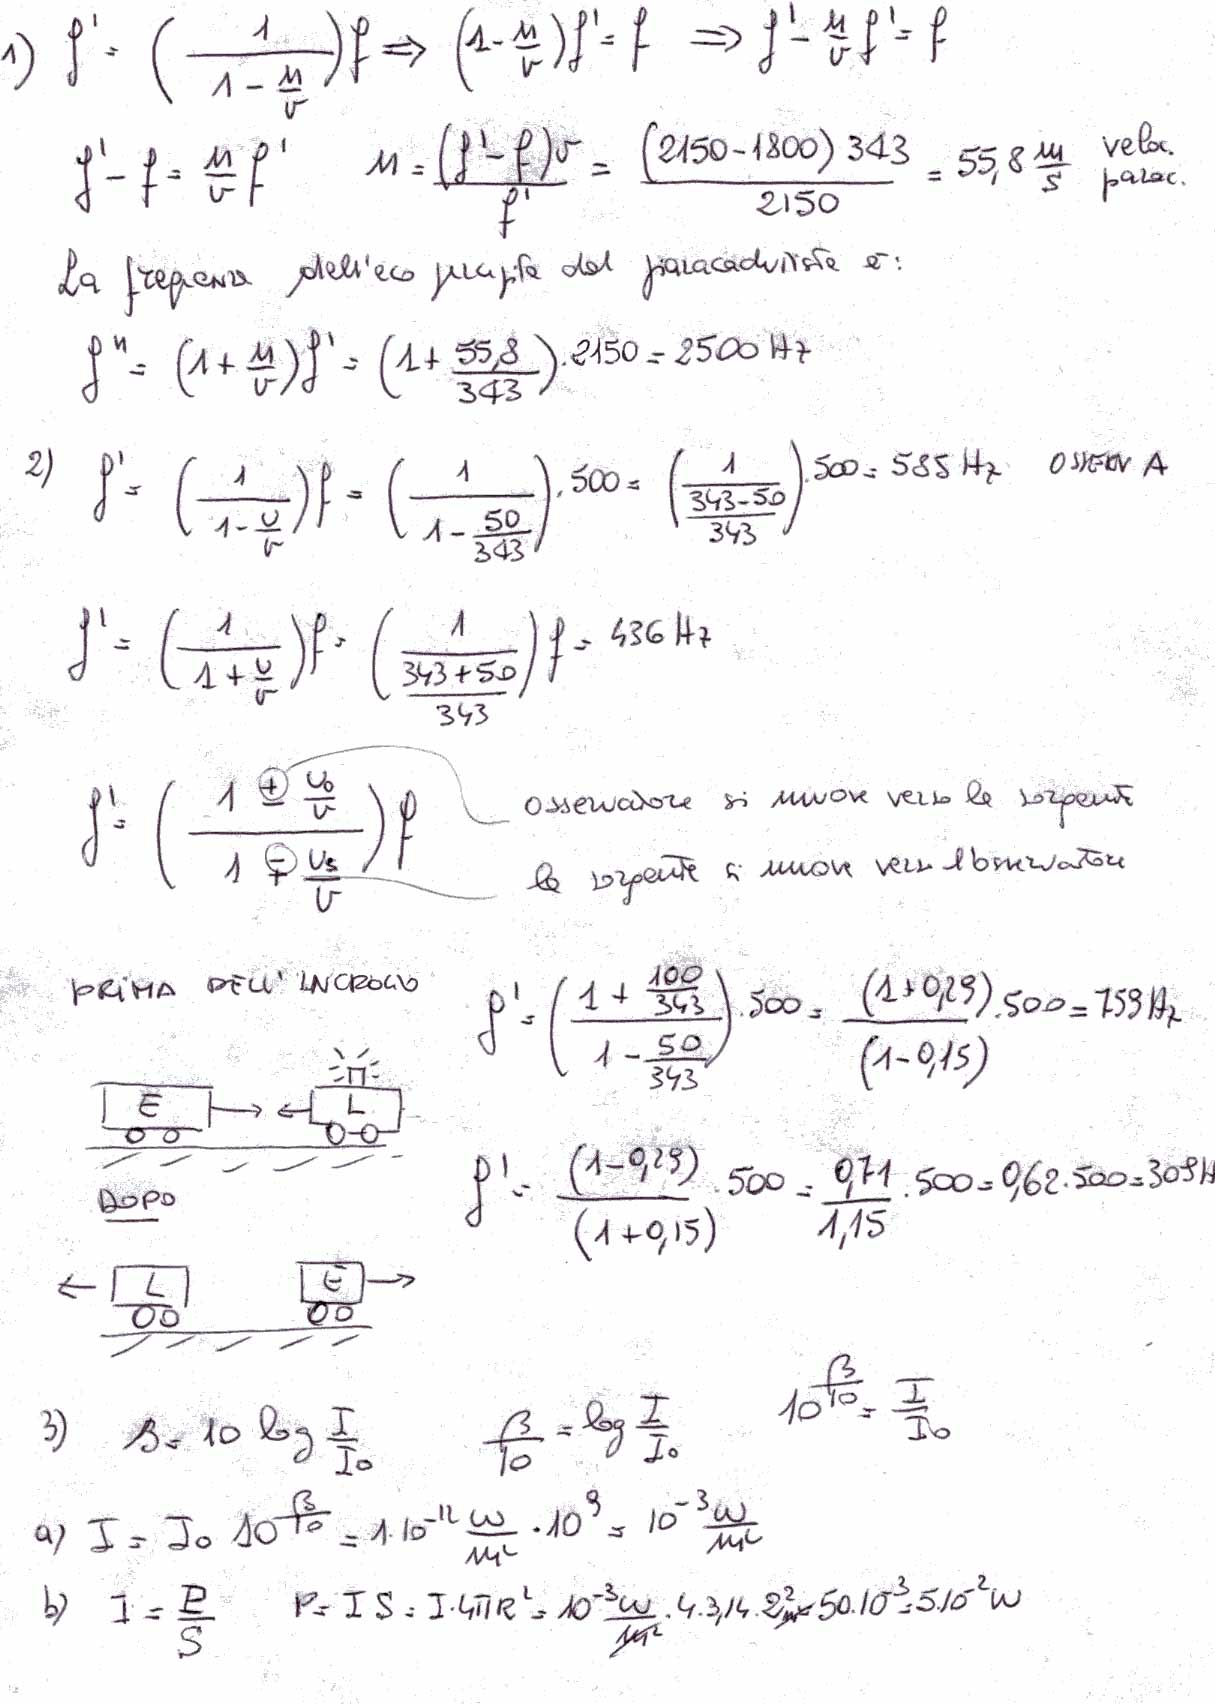 1) f' = (1/(1 - u/v)) f ⇒ (1 - u/v) f' = f ⇒ f' - u/v f' = f
f' - f = u/v f' u = (f' - f)v/f' = (2150-1800) 343/2150 = 55,8 m/s veloc. parac.
La frequenza dell'eco percepita dal paracadutista è:
f" = (1 + u/v) f' = (1 + 55,8/343) · 2150 = 2500 Hz
2) f' = (1/(1 - u/v)) f = (1/(1 - 50/343)) · 500 = (1/((343-50)/343)) · 500 = 585 Hz OSSERV A
f' = (1/(1 + u/v)) f = (1/((343+50)/343)) f = 436 Hz
f' = ((1 ± u₀/v)/(1 ∓ uₛ/v)) f
osservatore si muove verso la sorgente
la sorgente si muove verso l'osservatore
PRIMA DELL'INCROCIO
f' = ((1 + 100/343)/(1 - 50/343)) · 500 = (1+0,29)/(1-0,15) · 500 = 759 Hz
E L
f' = (1-0,29)/(1+0,15) · 500 = 0,71/1,15 · 500 = 0,62 · 500 = 309 H
DOPO
L E
3) β = 10 log I/I₀ β/10 = log I/I₀ 10^(β/10) = I/I₀
a) I = I₀ 10^(β/10) = 1·10⁻¹² W/m² · 10⁹ = 10⁻³ W/m²
b) I = P/S P = I S = I·4πR² = 10⁻³ W/m² · 4·3,14·2² m² = 50·10⁻³ = 5·10⁻² W